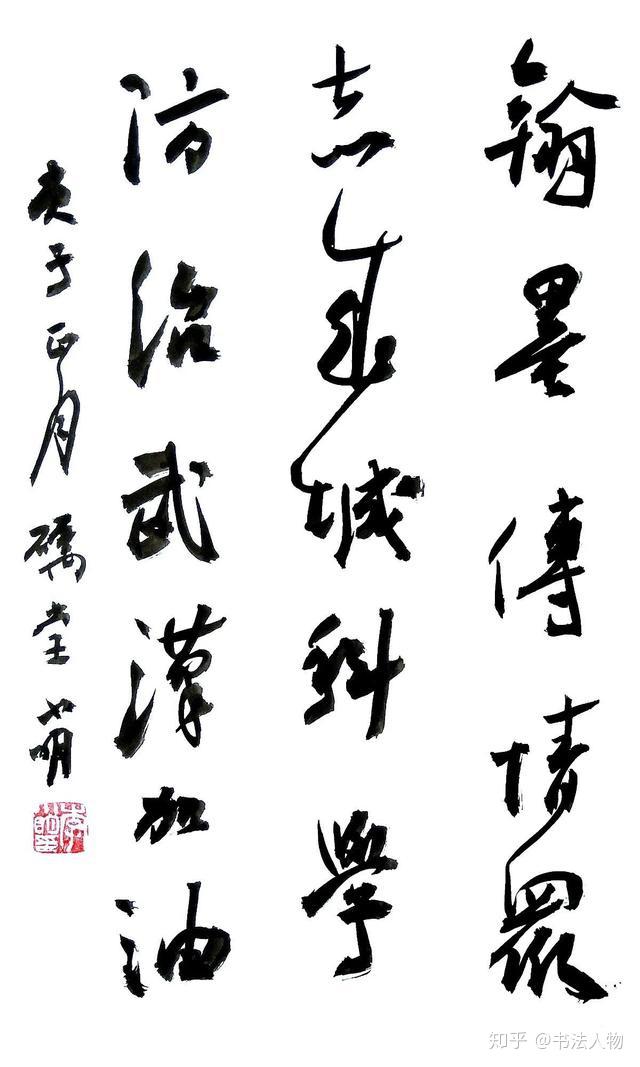 翰墨傳情眾
志成城科學
防治武漢加油
庚子正月 堂萌
知乎 @书法人物